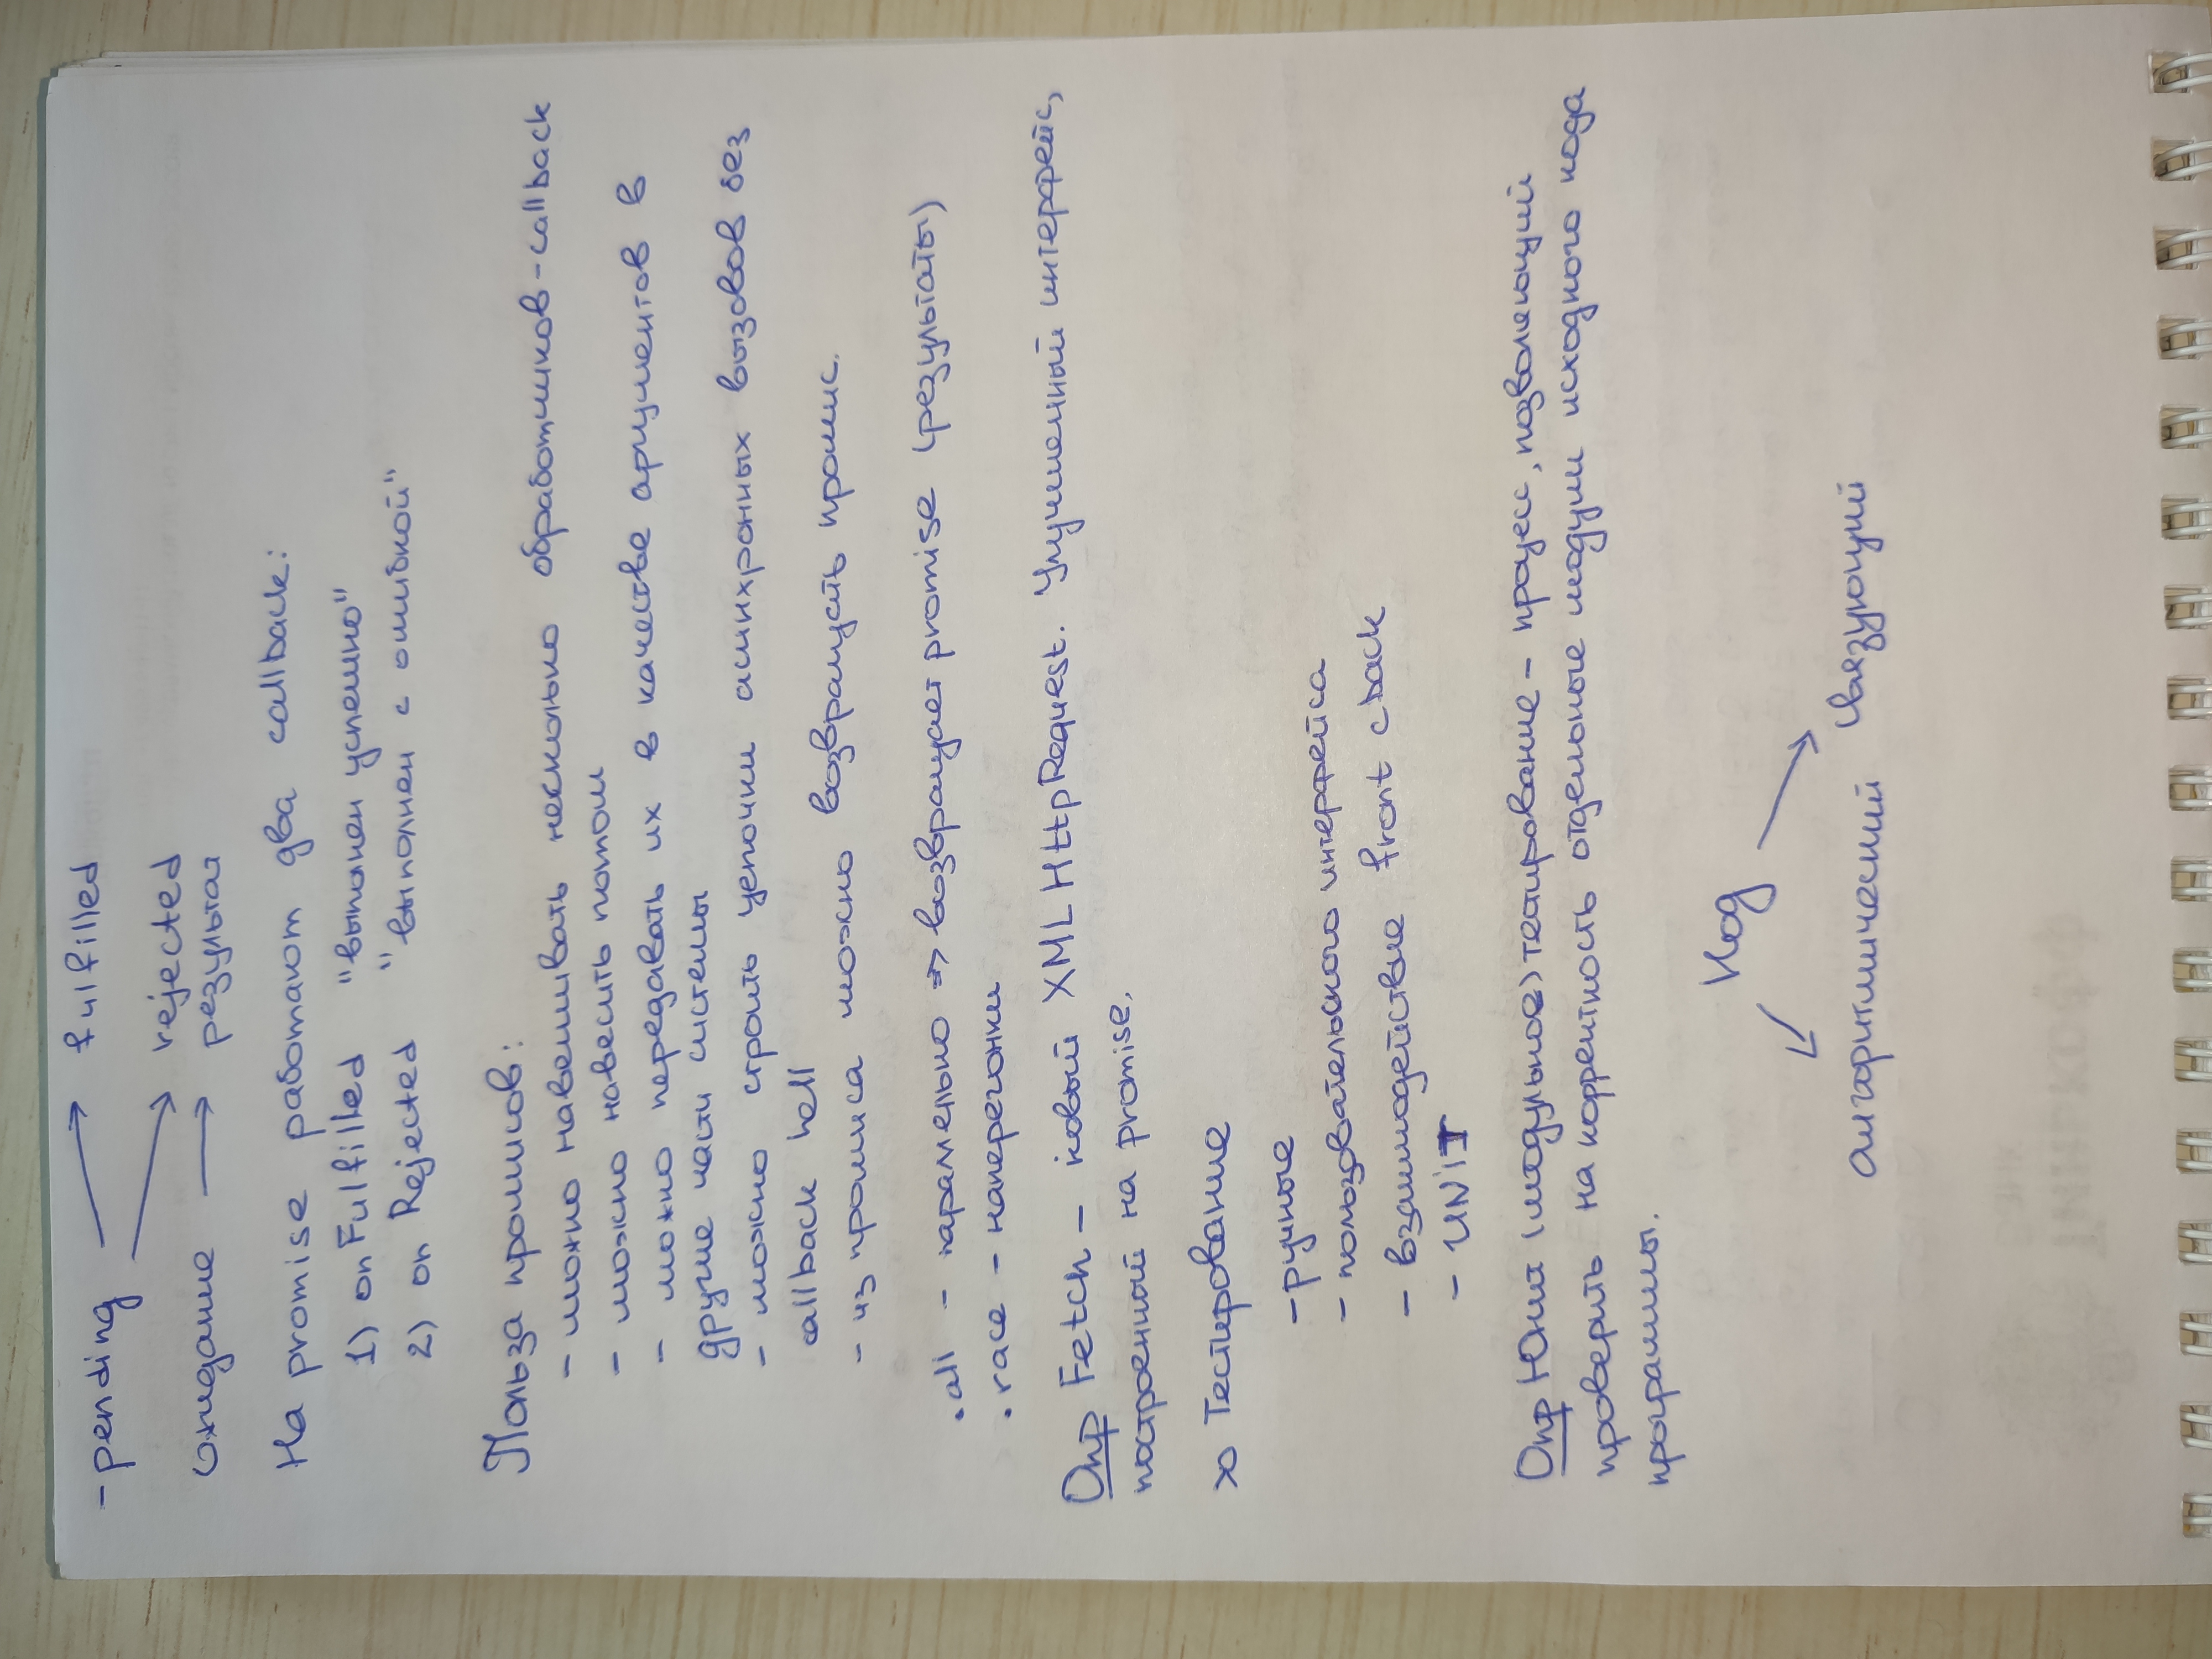 -pending → fulfilled
→ rejected
Ожидание → результат
На promise работают два callback:
1) onFulfilled "выполнен успешно"
2) on Rejected "выполнен с ошибкой"
Польза промисов:
- можно навешивать несколько обработчиков-callback
- можно навесить потом
- можно передавать их в качестве аргументов в
другие части системы
- можно строить цепочки асинхронных вызовов без
callback hell
- из промиса можно возвращать промис.
.all - параллельно => возвращает promise (результаты)
.race - наперегонки
Опр Fetch - новый XMLHttpRequest. Улучшенный интерфейс,
построенный на promise.
Тестирование
- ручные
- пользовательского интерфейса
- взаимодействие front с back
- UNIT
Опр Юнит (модульное) тестирование - процесс, позволяющий
проверить на корректность отдельные модули исходного кода
программы.
Код
алгоритмический связующий
банк
Тинькофф